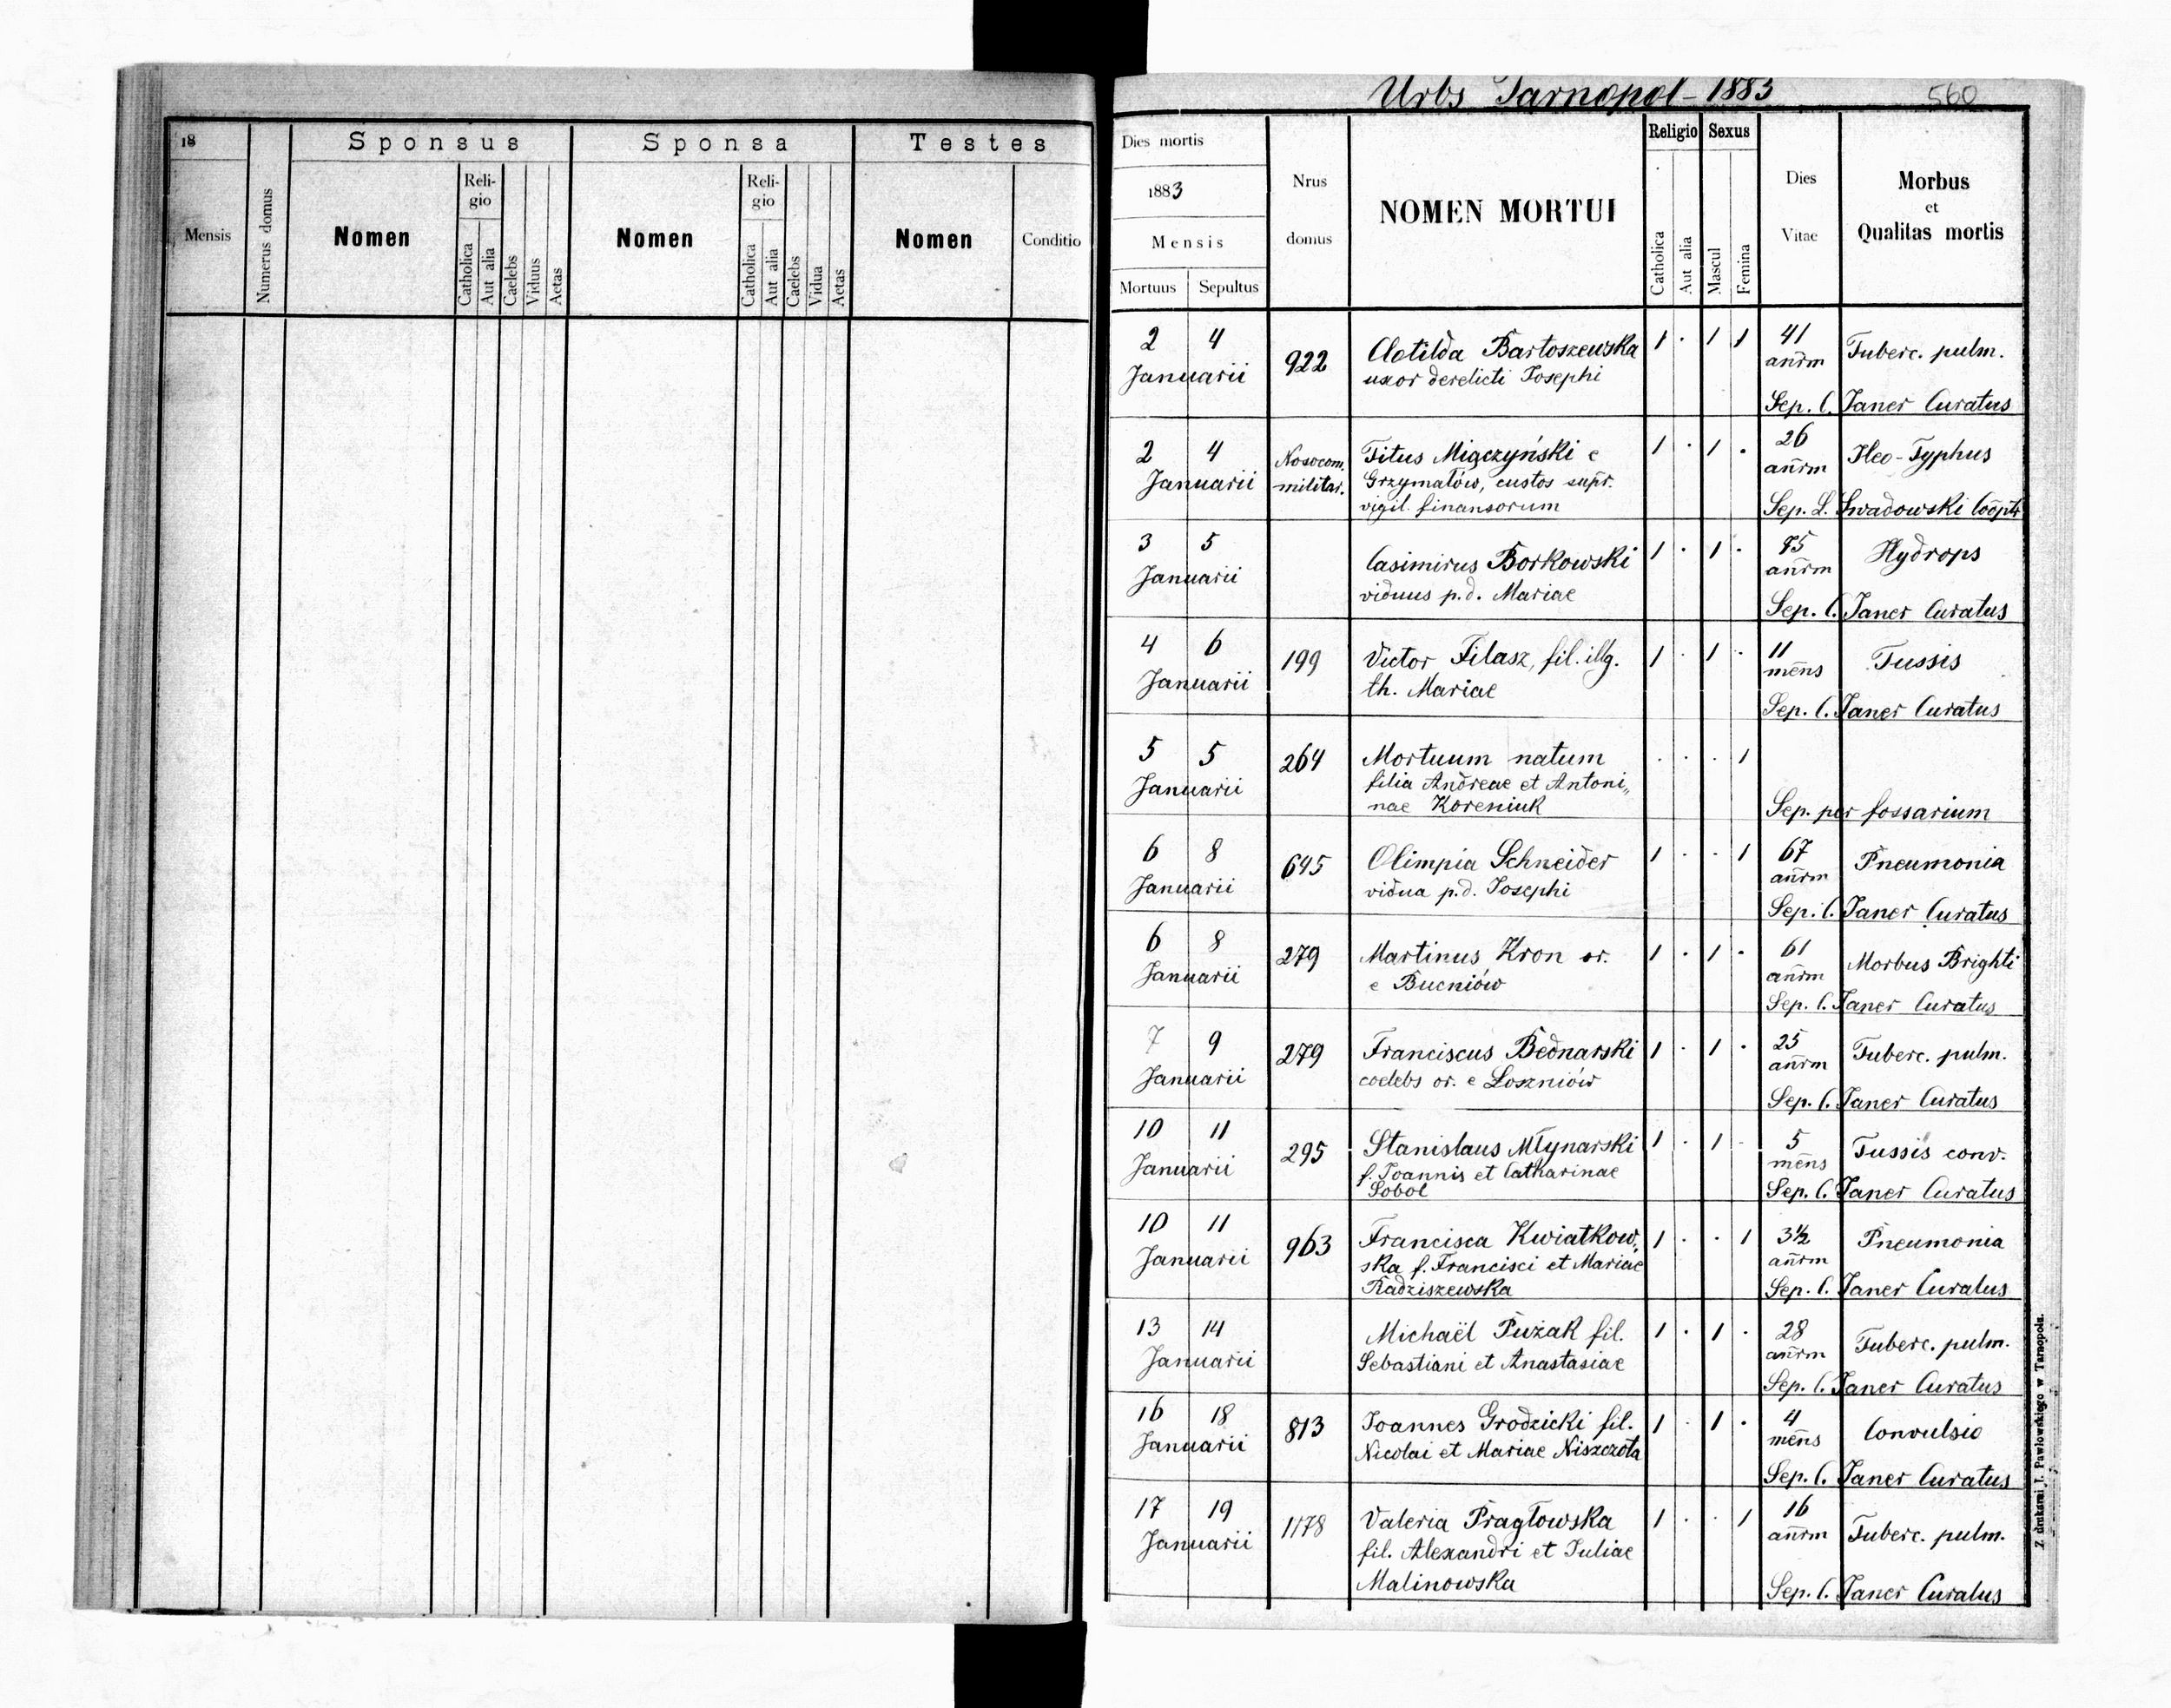 18
Sponsus
Sponsa
Testes
Mensis
Numerus domus
Nomen
Religio
Catholica
Aut alia
Caelebs
Viduus
Aetas
Nomen
Religio
Catholica
Aut alia
Caelebs
Vidua
Aetas
Nomen
Conditio
Urbs Tarnopol - 1883
560
Dies mortis
1883
Mensis
Mortuus Sepultus
Nrus domus
NOMEN MORTUI
Religio Sexus
Catholica
Aut alia
Mascul
Femina
Dies Vitae
Morbus
et
Qualitas mortis
2 4 Januarii 922 Clotilda Bartoszewska 1 . 1 1 41 anrm Tuberc. pulm.
uxor derelicti Josephi
Sep. C. Janer Curatus
2 4 Januarii Nosocom. militar. Titus Miączyński e 1 . 1 . 26 anrm Ileo-Typhus
Grzymałów, custos supr.
vigil. finansorum
Sep. L. Swadowski Cooptr
3 5 Januarii Casimirus Borkowski 1 . 1 . 75 anrm Hydrops
viduus p.d. Mariae
Sep. C. Janer Curatus
4 6 Januarii 199 Victor Filasz, fil. illg. 1 . 1 . 11 mens Tussis
th. Mariae
Sep. C. Janer Curatus
5 5 Januarii 264 Mortuum natum . . . 1
filia Andreae et Antoni„
nae Koreniuk
Sep. per fossarium
6 8 Januarii 645 Olimpia Schneider 1 . . 1 67 anrm Pneumonia
vidua p.d. Josephi
Sep. C. Janer Curatus
6 8 Januarii 279 Martinus Kron or. 1 . 1 . 61 anrm Morbus Brighti
e Bucniów
Sep. C. Janer Curatus
7 9 Januarii 279 Franciscus Bednarski 1 . 1 . 25 anrm Tuberc. pulm.
coelebs or. e Łoszniów
Sep. C. Janer Curatus
10 11 Januarii 295 Stanislaus Młynarski 1 . 1 . 5 mens Tussis conv.
f. Joannis et Catharinae
Soboł
Sep. C. Janer Curatus
10 11 Januarii 963 Francisca Kwiatkow„ 1 . . 1 3½ anrm Pneumonia
ska f. Francisci et Mariae
Radziszewska
Sep. C. Janer Curatus
13 14 Januarii Michaël Pużak fil. 1 . 1 . 28 anrm Tuberc. pulm.
Sebastiani et Anastasiae
Sep. C. Janer Curatus
16 18 Januarii 813 Joannes Grodzicki fil. 1 . 1 . 4 mens Convulsio
Nicolai et Mariae Niszczota
Sep. C. Janer Curatus
17 19 Januarii 1178 Valeria Pragłowska 1 . . 1 16 anrm Tuberc. pulm.
fil. Alexandri et Juliae
Malinowska
Sep. C. Janer Curatus
Z drukarni J. Pawłowskiego w Tarnopolu.